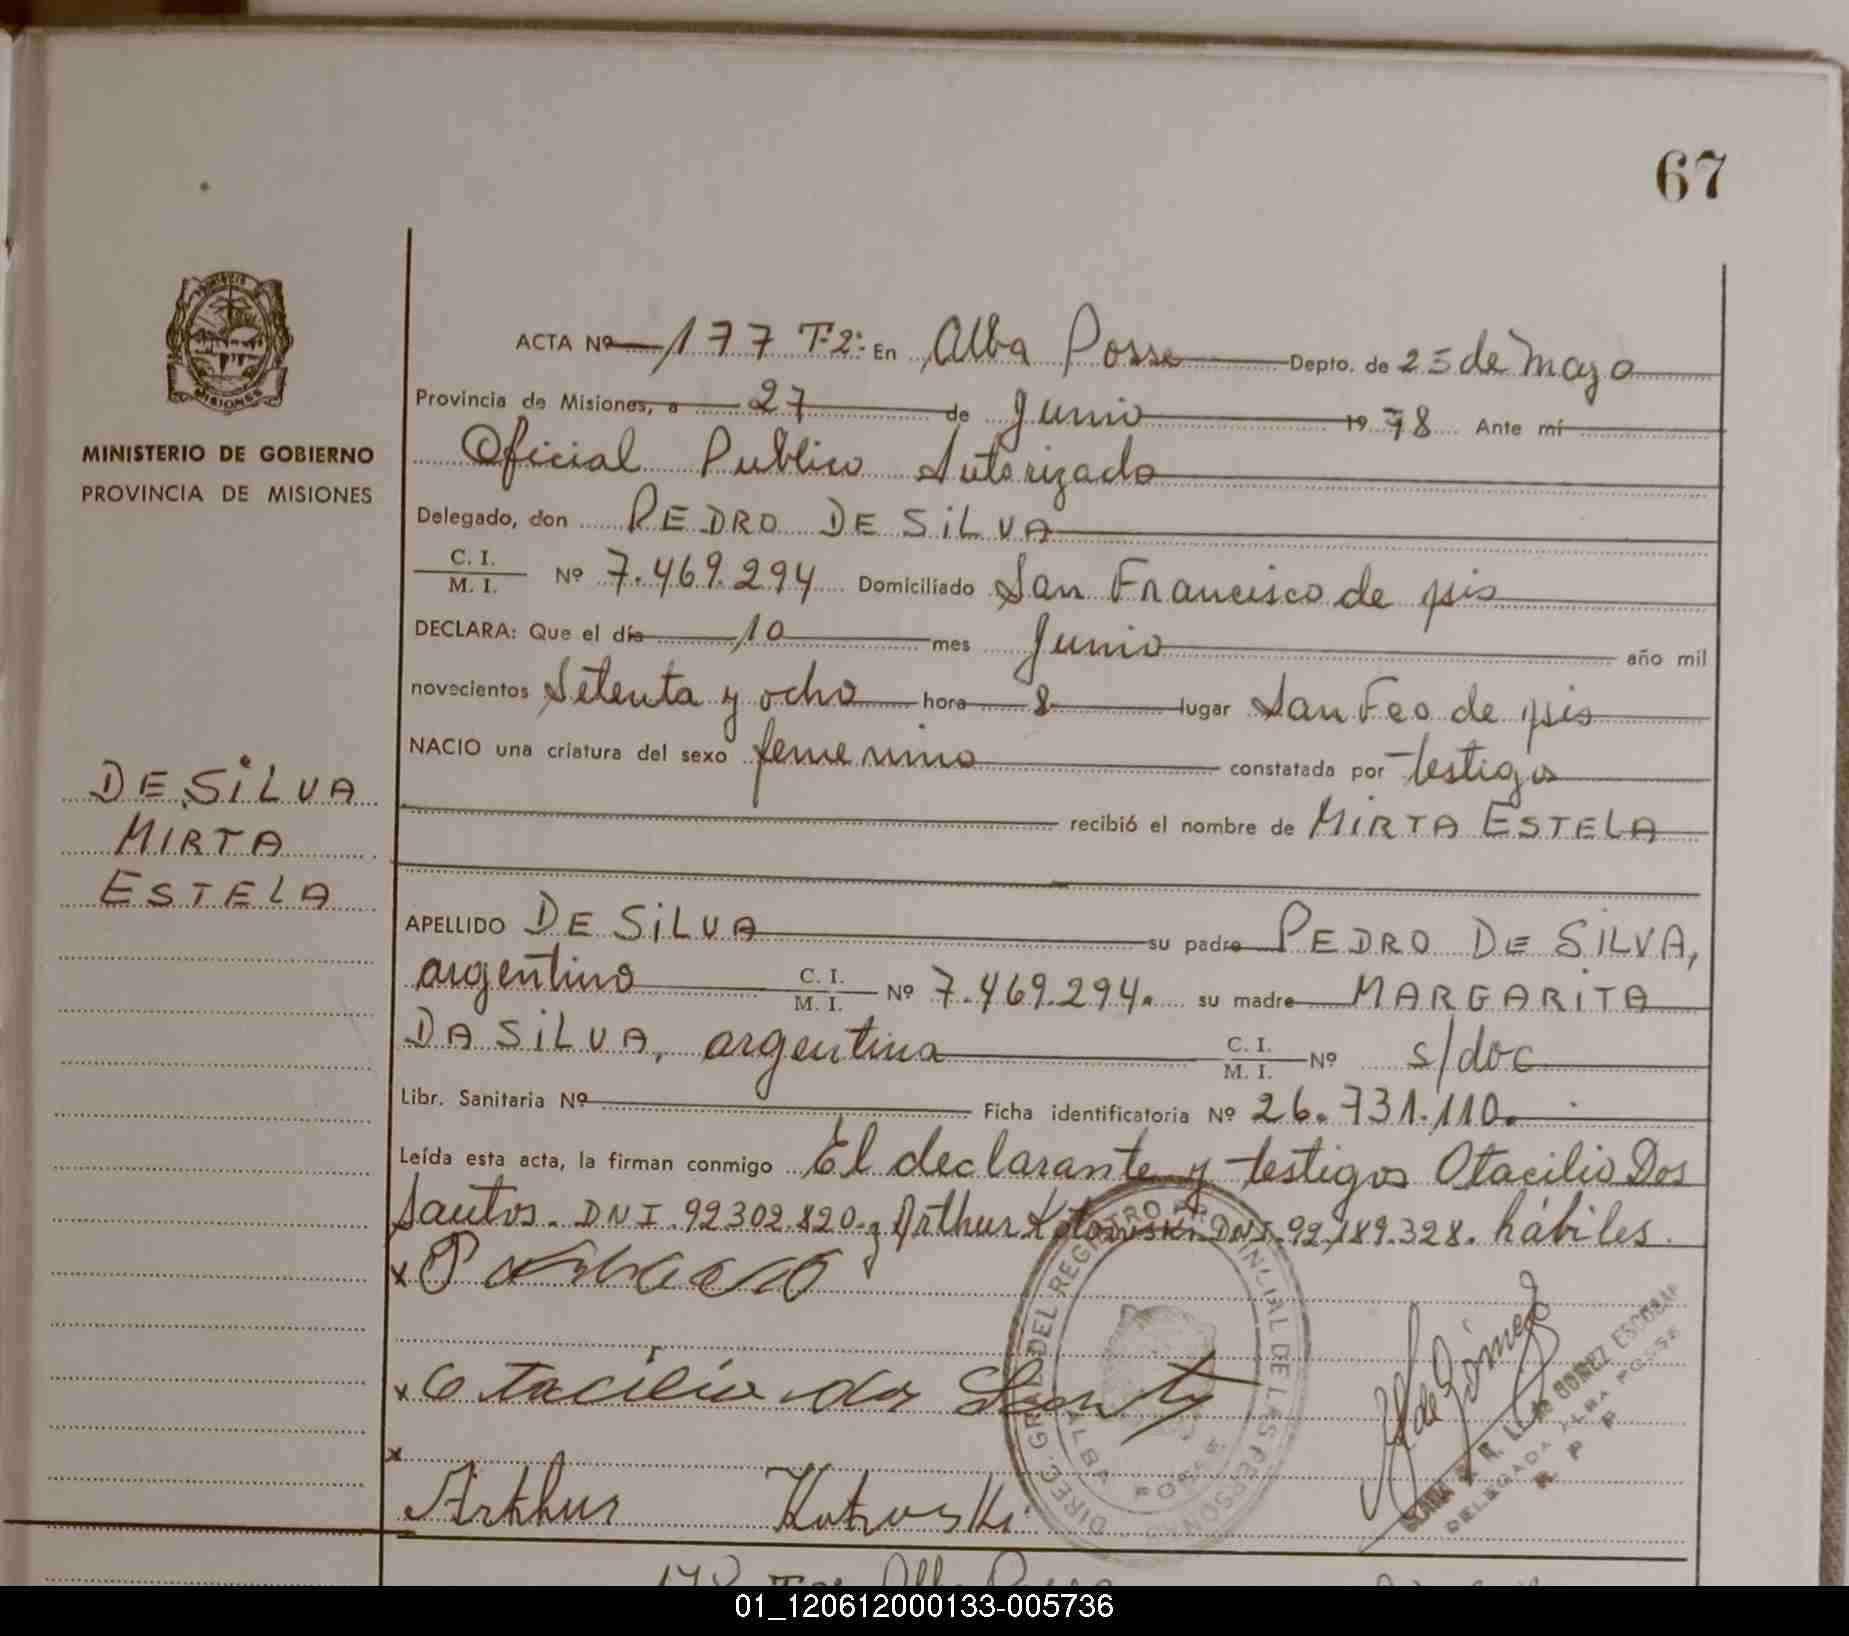 67
MINISTERIO DE GOBIERNO
PROVINCIA DE MISIONES
DE SILVA
MIRTA
ESTELA
ACTA Nº 177 T-2: En Alba Posse Depto. de 25 de Mayo
Provincia de Misiones, a 27 de Junio 1978 Ante mí
Oficial Publico Autorizado
Delegado, don PEDRO DE SILVA
C. I.
M. I. Nº 7.469.294 Domiciliado San Francisco de Asis
DECLARA: Que el día 10 mes Junio año mil
novecientos Setenta y ocho hora 8 lugar San Fco de Asis
NACIO una criatura del sexo femenino constatada por testigos
recibió el nombre de MIRTA ESTELA
APELLIDO DE SILVA su padre PEDRO DE SILVA,
argentino C. I. M. I. Nº 7.469.294. su madre MARGARITA
DA SILVA, argentina C. I. M. I. Nº s/doc
Libr. Sanitaria Nº Ficha identificatoria Nº 26.731.110.
Leída esta acta, la firman conmigo El declarante y testigos Otacilio Dos
Santos. DNI. 92302.820. y Arthur Kotowski DNI. 92.189.328. hábiles.
x
x Otacilio dos Santos
x
Arthur
DIREC. GRAL. DEL REGISTRO PROVINCIAL DE LAS PERSONAS
ALBA POSSE
de Gómez
GOMEZ ESCOBAR
DELEGADA ALBA POSSE
R P P
178 T-2: Alba Posse
01_120612000133-005736